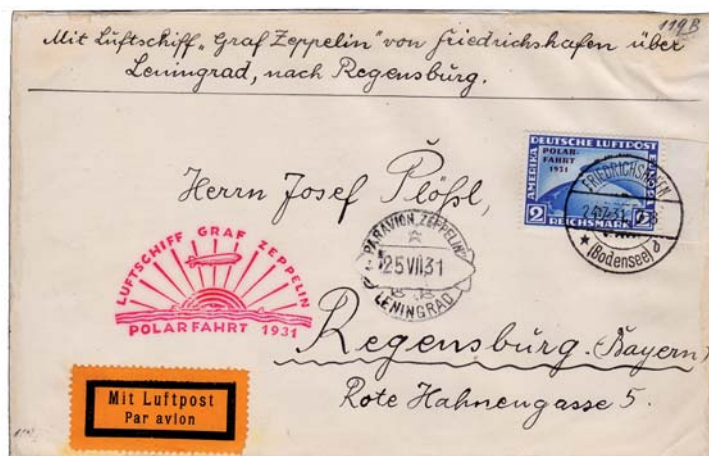 119B
Mit Luftschiff „Graf Zeppelin“ von Friedrichshafen über
Leningrad, nach Regensburg.
DEUTSCHE LUFTPOST
AMERIKA
POLAR-
FAHRT
1931
2 REICHSMARK 2
FRIEDRICHSHAFEN
(Bodensee) d
Herrn Josef Plößl,
PAR AVION ZEPPELIN
25 VII 31
LENINGRAD
LUFTSCHIFF GRAF ZEPPELIN
POLARFAHRT 1931
Regensburg. (Bayern)
Rote Hahnengasse 5.
Mit Luftpost
Par avion